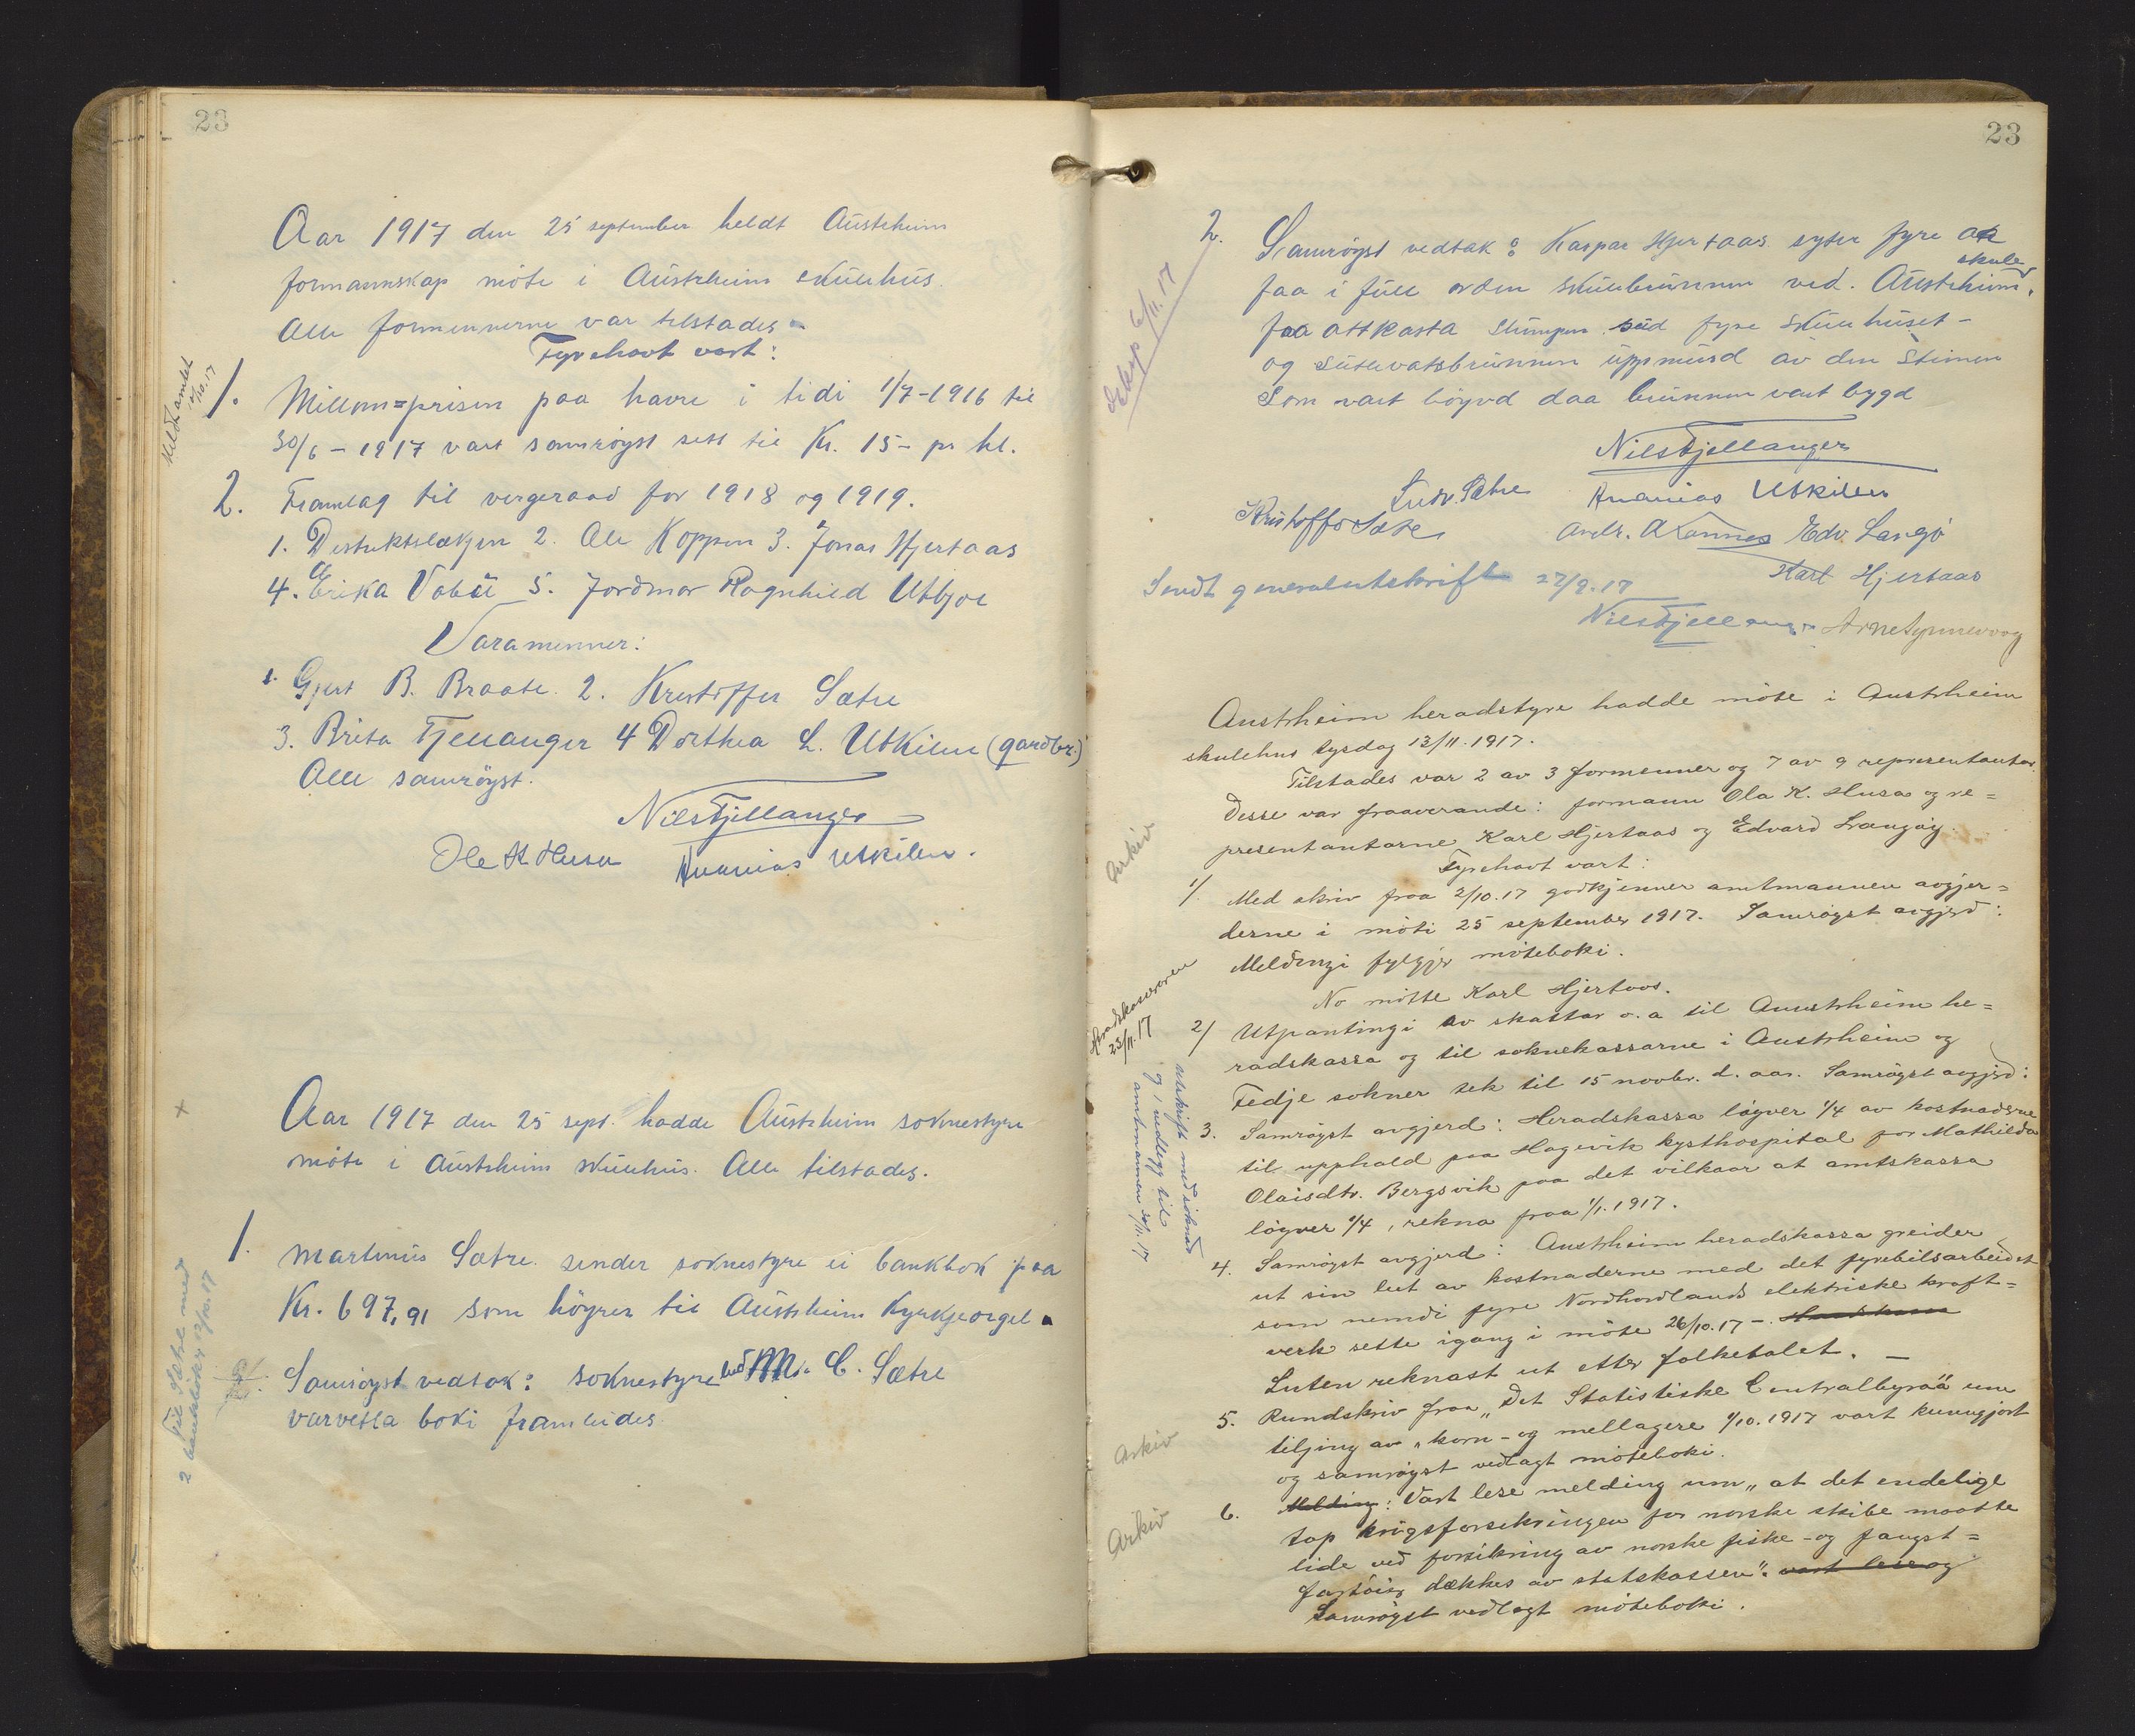 23
Aar 1917 den 25 september heldt Austrheim
formannskap möte i Austrheim skulehus.
Alle formennerne var tilstades.
Fyrehavt vart:
Meldt amtet
2/10.17
1. Millom=prisen paa havre i tidi 1/7-1916 til
30/6-1917 vart samröyst sett til Kr. 15- pr hl.
2. Framlag til vergeraad for 1918 og 1919.
1. Distriktslækjen 2. Ole Koppen 3. Jonas Hjertaas
4. Erika Vabö 5. Jordmor Ragnhild Utbjoe
Varamenner:
1. Gjert B. Braate. 2. Kristoffer Sætre
3. Brita Fjellanger 4 Dorthea L. Utkilen (gardbr.)
Alle samröyst.
Nils Fjellanger
Ole K Husa Ananias Utkilen.
x
Aar 1917 den 25 sept. hadde Austrheim soknestyre
möte i Austrheim skulehus. Alle tilstades.
1. Martinus Sætre sender soknestyre ei bankbok paa
Kr. 697,91 som höyrer til Austrheim Kyrkjeorgel.
Til Sætre med
2 bankboker 2/10.17
Samröyst vedtak: soknestyre bed M. C. Sætre
varveitla boki framleides
23
Utskr 6/11.17
2. Samröyst vedtak: Kaspar Hjertaas syter fyre at
faa i full orden skulebrunnen ved. Austrheim skule,
faa attkasta stumpen sud fyre skulehuset-
og sutervatsbrunnen uppmurd av den Steinen
Som vart höyvd daa brunnen vart bygd
Nils Fjellanger
Ludv. Sætre Ananias Utkilen
Kristoffer Sætre Andr. Kannes Edv Langö
Karl Hjertaas
Sendt generalutskrift 27/9.17
Nils Fjellanger Arne Synnevaag
Austrheim heradstyre hadde möte i Austrheim
skulehus tysdag 13/11.1917.
Tilstades var 2 av 3 formenner og 7 av 9 representantar.
Desse var fraaverande: formann Ola K. Husa og re=
presentantarne Karl Hjertaas og Edvard Langöy.
Fyrehavt vart:
Arkiv
1/. Med skriv fraa 2/10.17 godkjenner amtmannen avgjer=
derne i möti 25 september 1917. Samröyst avgjerd:
Meldingi fylgjer möteboki.
No mötte Karl Hjertaas.
Heradskassereren
23/11.17
2/ Utpantingi av skattar o.a til Austrheim he=
radskassa og til soknekassarne i Austrheim og
Fedje sokner tek til 15 novbr. d. aar. Samröyst avgjerd:
Utskrift med söknad
og 1 utlegg til
amtmannen 30/11.17
3. Samröyst avgjerd: Heradskassa löyver 1/4 av kostnaderne
til upphald paa Hagevik kysthospital for Mathilda
Olaisdtr. Bergsvik paa det vilkaar at amtskassa
löyver 1/4, rekna fraa 1/1.1917.
4. Samröyst avgjerd: Austrheim heradskassa greider
ut sin lut av kostnaderne med det fyrebilsarbeidet
som nemdi fyre Nordhordlands elektriske kraft=
verk sette igang i möte 26/10.17 -.
Luten reknast ut etter folketalet. -
Arkiv
5. Rundskriv fraa "Det Statistiske Centralbyraa" um
teljing av "korn- og mellagere 1/10.1917 vart kunngjort
og samröyst vedlagt möteboki.
Arkiv
6. Melding: Vart lese melding um "at det endelige
tap krigsforsikringen for norske skibe maatte
lide ved forsikring av norske fiske- og fangst=
fartöier dækkes av statskassen". vart lese og
Samröyst vedlagt möteboki.